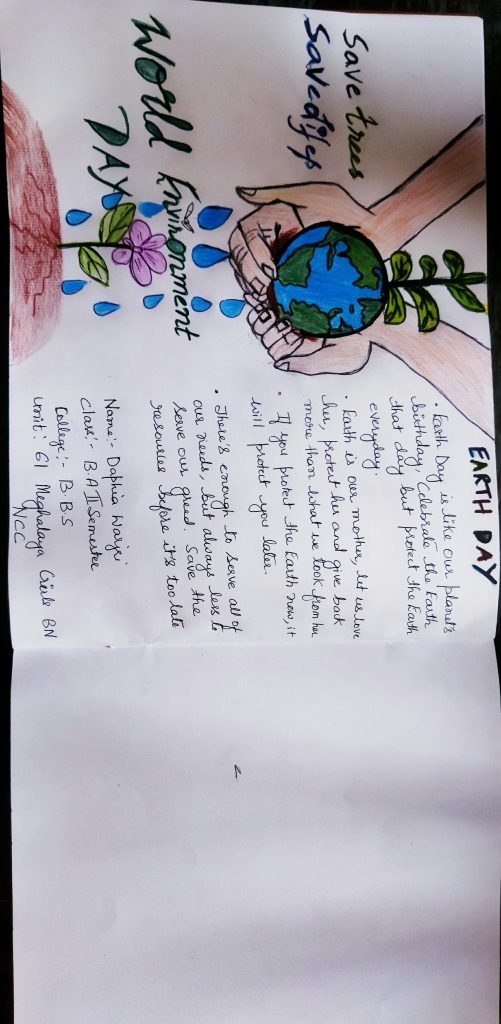 Save trees
Save lifes
World Environment
DAY
EARTH DAY
• Earth Day is like our planet's
birthday. Celebrate the Earth
that day but protect the Earth
everyday.
• Earth is our mother, let us love
her, protect her and give back
more than what we took from her
• If you protect the Earth now, it
will protect you later.
• There's enough to serve all of
our needs, but always less to
serve our greed. Save the
resources before it's too late
Name:- Daphia Warjri
Class:- B.A II Semester
College:- B.B.S
Unit: 61 Meghalaya Girls BN
NCC